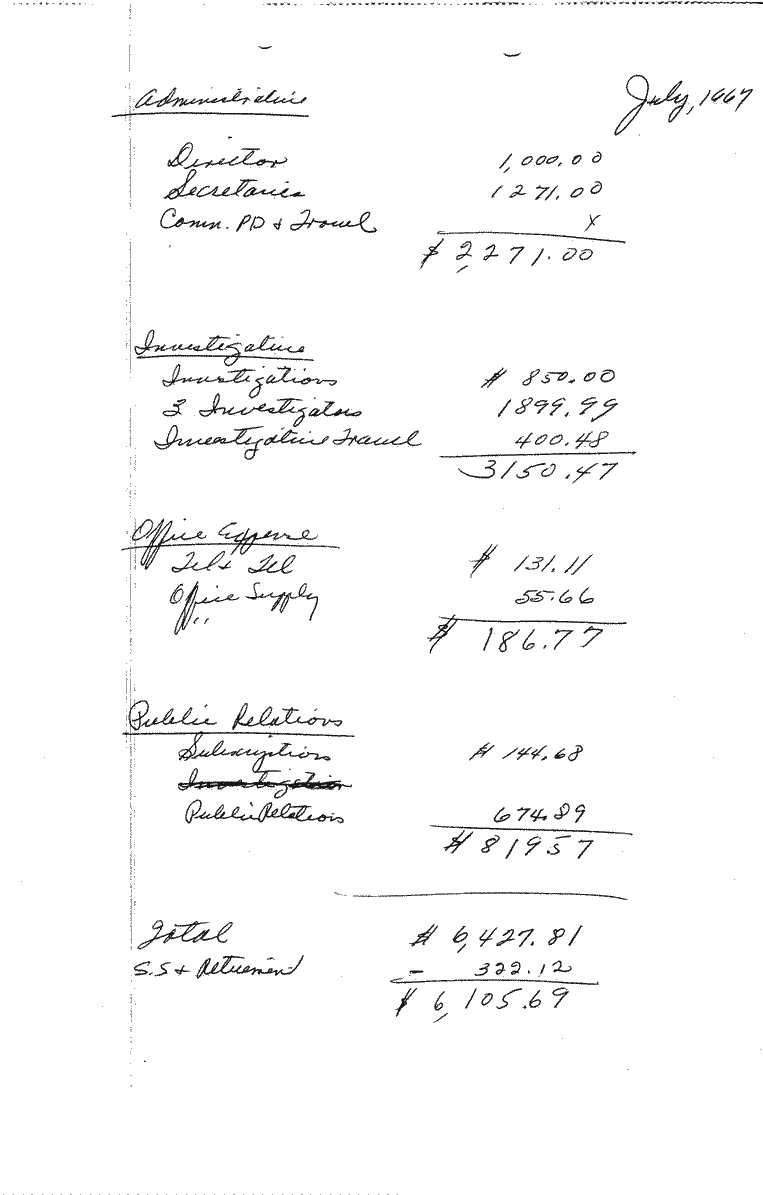 Administrative
July, 1967
Director 1,000.00
Secretaries 1271.00
Comm. PD & Travel x
$ 2,271.00
Investigative
Investigations $ 850.00
3 Investigators 1899.99
Investigative Travel 400.48
3150.47
Office Expense
Tel & Tel $ 131.11
Office Supply 55.66
"
$ 186.77
Public Relations
Subscriptions $ 144.68
Investigation
Public Relations 674.89
$ 819 57
Total $ 6,427.81
S.S + Retirement - 322.12
$ 6,105.69